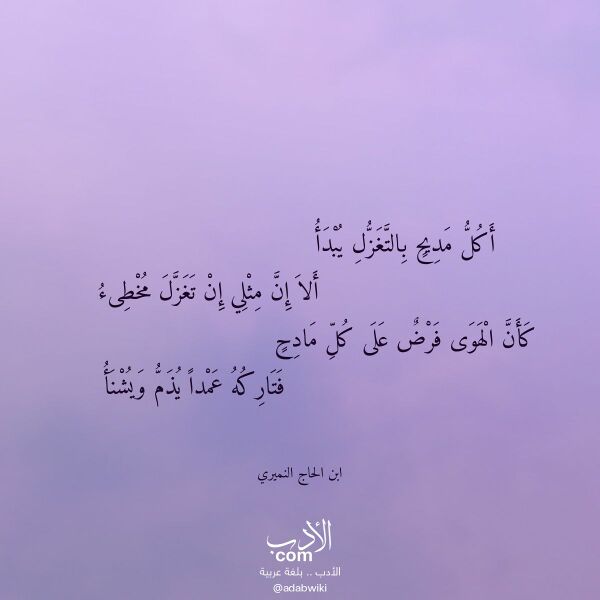 أَكُلُّ مَدِيحٍ بِالتَّغَزُّلِ يُبْدَأُ
أَلاَ إِنَّ مِثْلِي إِنْ تَغَزَّلَ مُخْطِىءُ
كَأَنَّ الْهَوَى فَرْضٌ عَلَى كُلِّ مَادِحٍ
فَتَارِكُهُ عَمْداً يُذَمُّ وَيُشْنَأُ
ابن الحاج النميري
الأدب
.com
الأدب .. بلغة عربية
@adabwiki